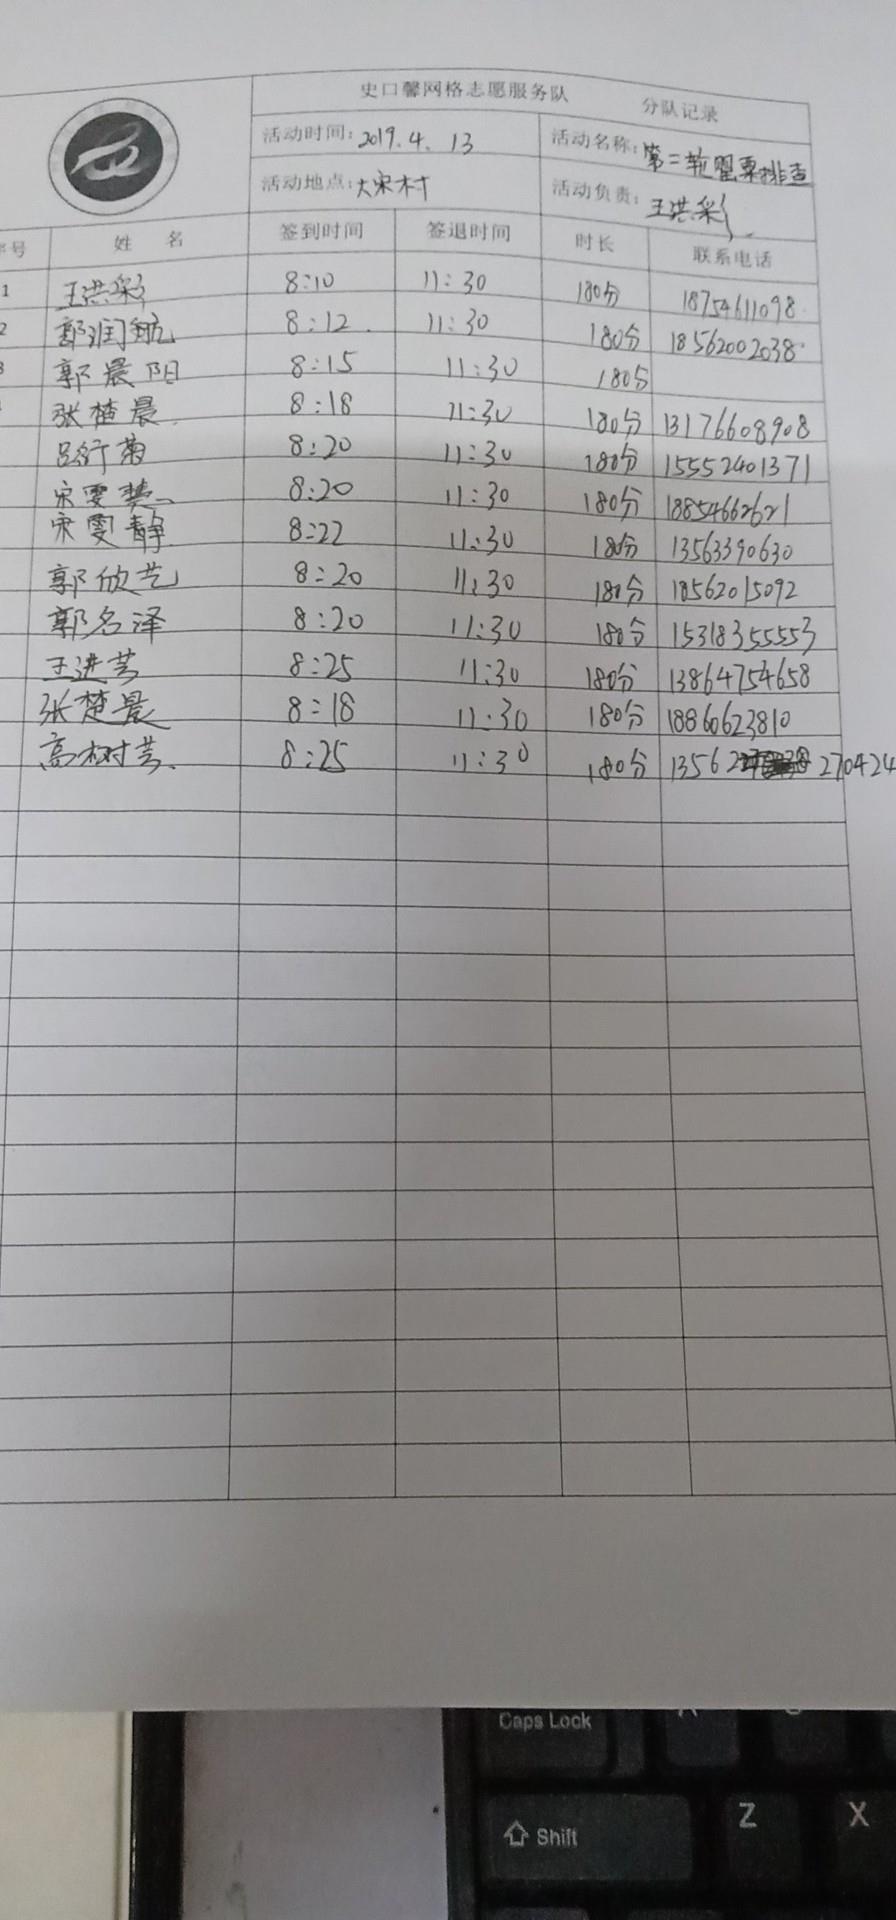 史口馨网格志愿服务队 分队记录
活动时间：2019.4.13 活动名称：第二轮罂粟排查
活动地点：大宋村 活动负责：王洪彩
序号 姓 名 签到时间 签退时间 时长 联系电话
1 王洪彩 8:10 11:30 180分 18754611098
2 郭润航 8:12 11:30 180分 18562002038
3 郭晨阳 8:15 11:30 180分
张楚晨 8:18 11:30 180分 13176608908
吕行菊 8:20 11:30 180分 15552401371
宋雯 8:20 11:30 180分 18854662621
宋雯静 8:22 11:30 180分 13563390630
郭欣艺 8:20 11:30 180分 18562015092
郭名泽 8:20 11:30 180分 15318355553
王进芸 8:25 11:30 180分 13864754658
张楚晨 8:18 11:30 180分 18860623810
高树芸 8:25 11:30 180分 13562 270424
Caps Lock A
Shift Z X